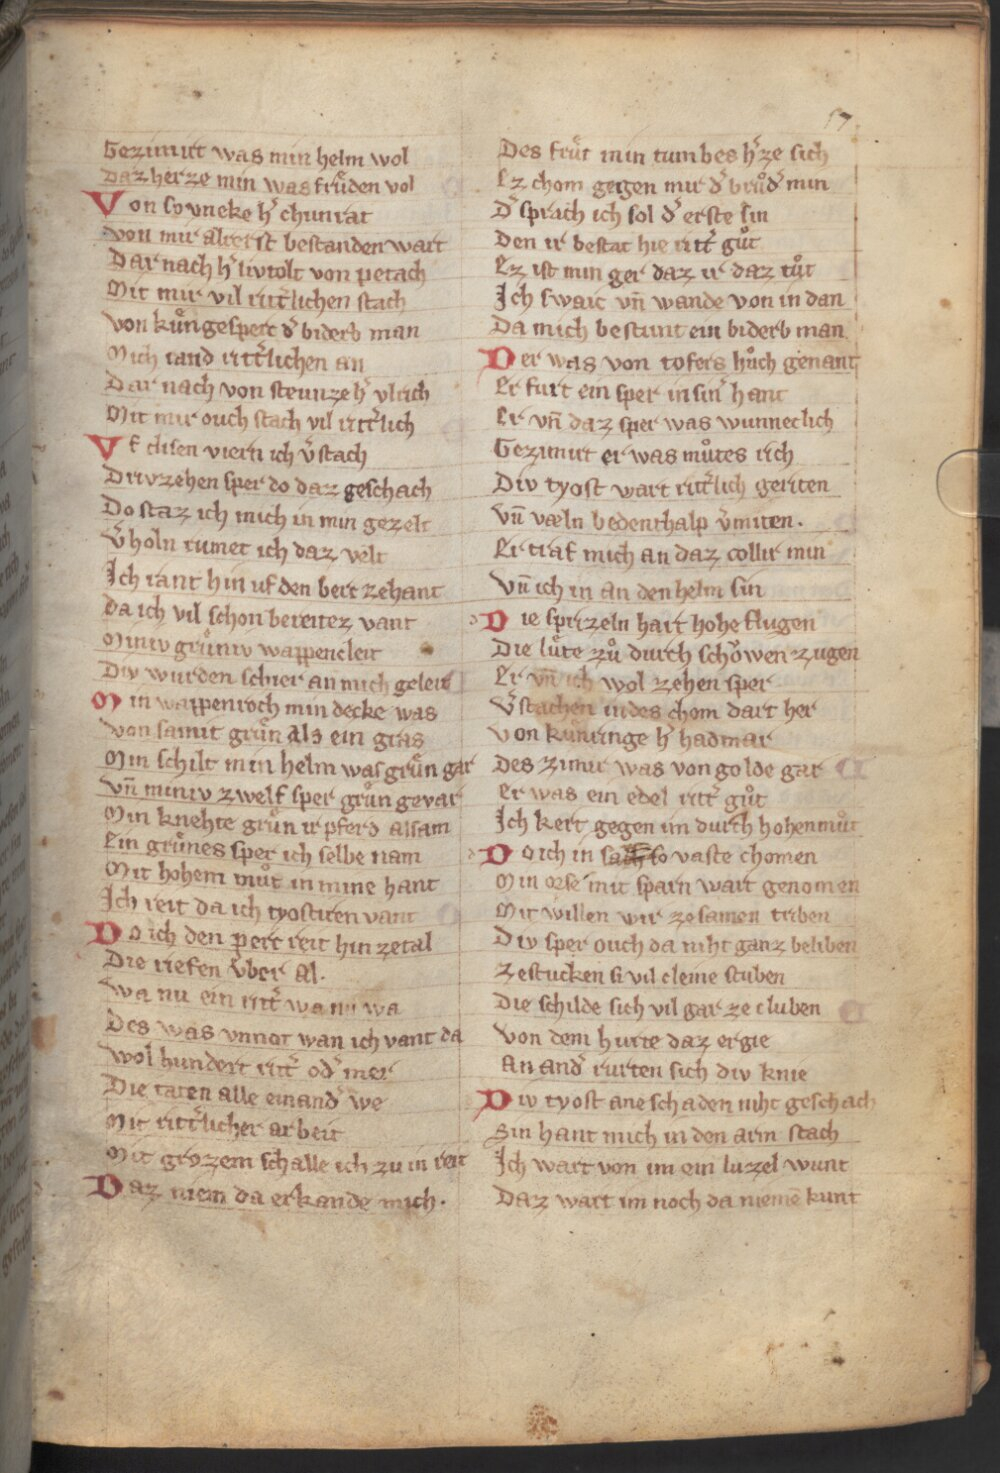 17
Gezimirt was min helm wol
Daz herze min was frůden vol
Von sovneke h̾ chunrat
Von mir alrerst bestanden wart
Dar nach h̾ livtolt von petach
Mit mir vil ritt̾lichen stach
Von kůngesperc d̾ biderb man
Mich rand ritt̾lichen an
Dar nach von steunze h̾ vlrich
Mit mir ouch stach vil ritt̾lich
Vf disen viern ich v̾stach
Drivzehen sper do daz geschach
Do staz ich mich in min gezelt
V̾holn rumet ich daz velt
Ich rant hin uf den berc zehant
Da ich vil schon bereitez vant
Miniv grůniv wappencleit
Div wurden schier an mich geleit
Min wappenroch min decke was
Von samit grůn Als ein gras
Min schilt min helm was grůn gar
Vn̄ miniv zwelf sper grůn gevar
Min knehte grůn ir pferd alsam
Ein grůnes sper ich selbe nam
Mit hohem můt in mine hant
Ich reit da ich tyostiren vant
Do ich den perc reit hin zetal
Die riefen v̾ber Al.
Wa nu ein ritt̾ wa nu wa
Des was vnnot wan ich vant da
Wol hundert ritt̾ od̾ mer
Die taten alle einand̾ we
Mit ritt̾licher arbeit
Mit grozem schalle ich zu in reit
Daz niem da erkande mich.
Des frůt min tumbes h̾ze sich
Ez chom gegen mir d̾ brůd̾ min
D̾ sprach ich sol d̾ erste sin
Den ir bestat hie ritt̾ gůt
Ez ist min ger daz ir daz tůt
Ich sweic vn̄ wande von in dan
Da mich bestunt ein biderb man
Der was von tofers hůch genant
Er furt ein sper in sin̾ hant
Er vn̄ daz sper was wunneclich
Gezimirt er was můtes rich
Div tyost wart ritt̾lich geriten
Vn̄ væln bedenthalp v̾miten.
Er traf mich an daz collir min
Vn̄ ich in an den helm sin
Die sprizeln hart hohe flugen
Die lůte zů durch schowen zugen
Er vn̄ ich wol zehen sper
V̾stachen indes chom dart her
Von kůnringe h̾ hadmar
Des zimir was von golde gar
Er was ein edel ritt̾ gůt
Ich kert gegen im durch hohen můt
Do ich in sach so vaste chomen
Min orse mit sparn wart genomen
Mit willen wir zesamen triben
Div sper ouch da niht ganz beliben
Zestucken si vil cleine stuben
Die schilde sich vil gar ze cluben
Von dem hurte daz ergie
An and̾ rurten sich div knie
Div tyost ane schaden niht geschach
Sin hant mich in den arm stach
Ich wart von im ein luzel wunt
Daz wart im noch da niemē kunt